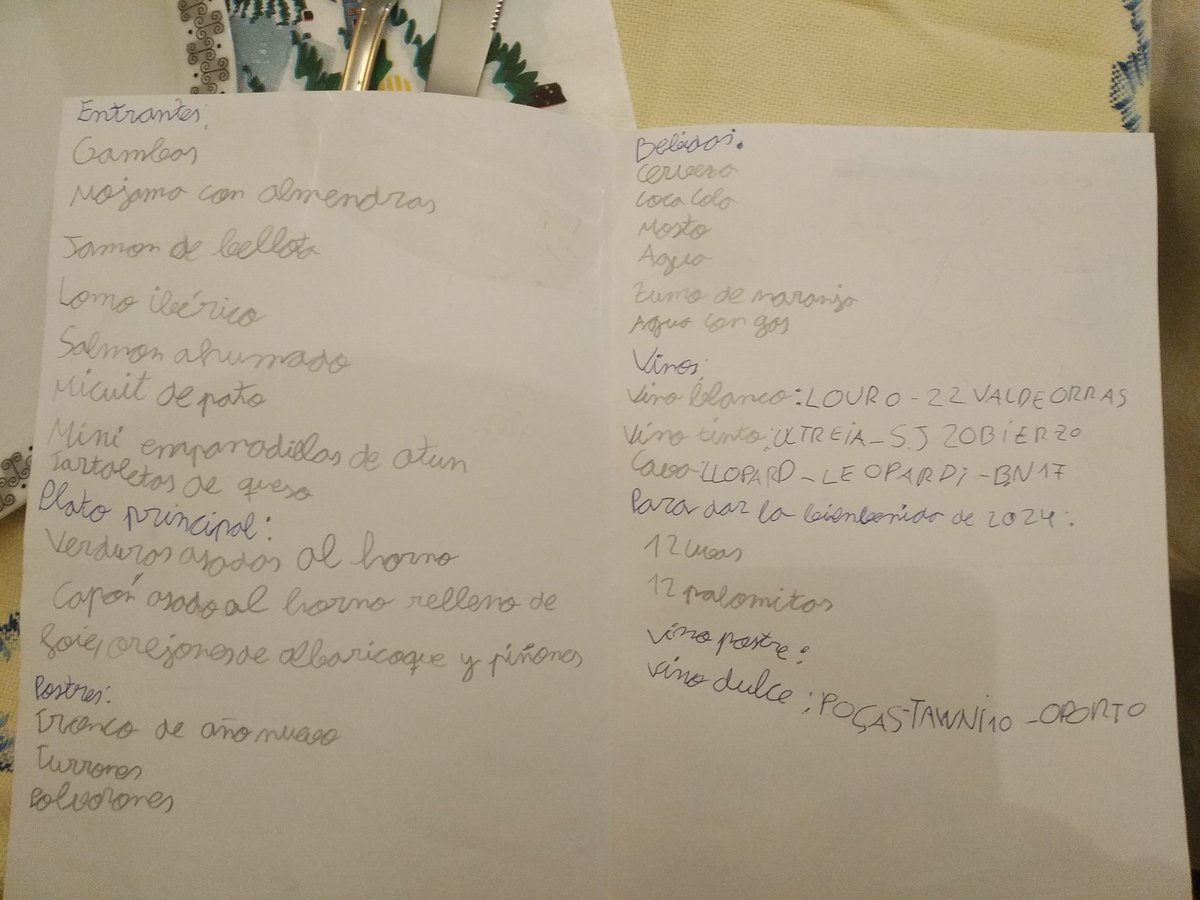 Entrantes:
Gambas
Mojama con almendras
Jamon de bellota
Lomo ibérico
Salmon ahumado
Micuit de pato
Mini empanadillas de atun
Tartaletas de queso
Plato principal:
Verduras asadas al horno
Capón asado al horno relleno de
foie, orejones de albaricoque y piñones
Postres:
Tronco de año nuevo
Turrones
Polvorones
Bebidas:
Cerveza
Coca Cola
Mosto
Agua
Zumo de naranja
Agua con gas
Vinos:
Vino blanco: LOURO - 22 VALDEORRAS
Vino tinto: ULTREIA - S.J 20 BiERZO
Cava: LLOPARD - LEOPARDi - BN 17
Para dar la bienbenida de 2024:
12 uvas
12 palomitas
Vino postre:
Vino dulce: POÇAS-TAWNi 10 - OPORTO